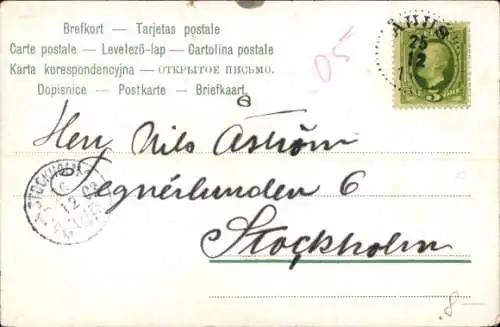 Brefkort — Tarjetas postale
Carte postale — Levelező-lap — Cartolina postale
Karta korespondencyjna — ОТКРЫТОЕ ПИСЬМО.
Dopisnice — Postkarte — Briefkaart.
05
25
12
5
Herr Nils Aström
Tegnérlunden 6
Stockholm
STOCKHOLM
12
8—